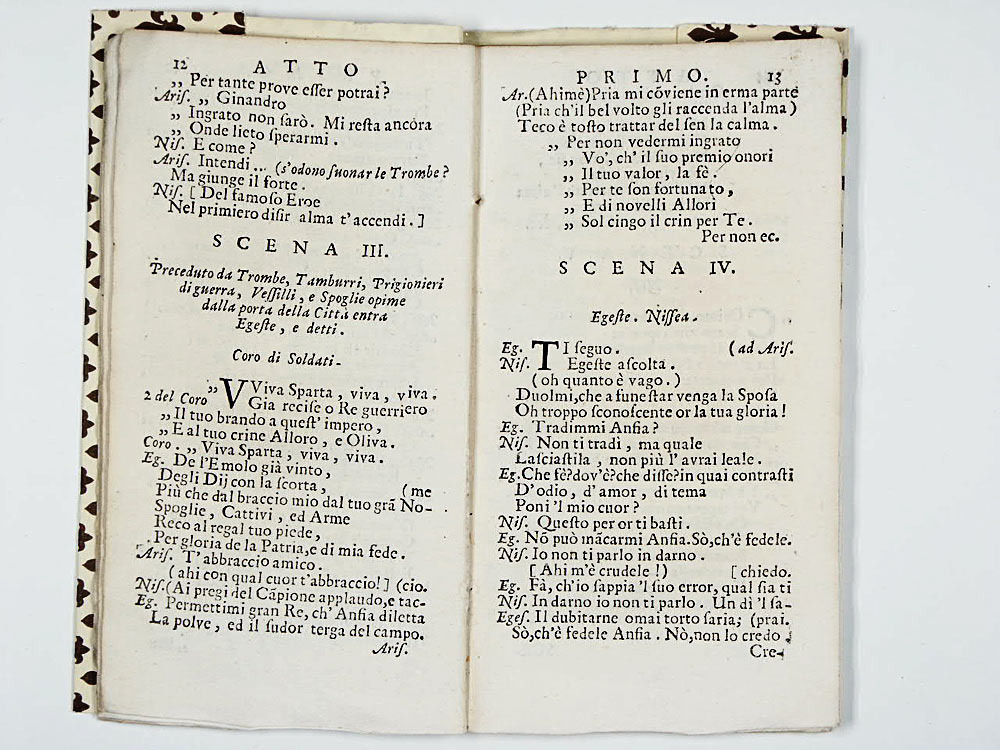 12 ATTO
„ Per tante prove eſſer potrai?
Ariſ. „ Ginandro
„ Ingrato non ſarò. Mi reſta ancora
„ Onde lieto ſperarmi.
Niſ. E come?
Ariſ. Intendi... (s'odono ſuonar le Trombe?
Ma giunge il forte.
Niſ. [ Del famoſo Eroe
Nel primiero diſir alma t'accendi. ]
SCENA III.
Preceduto da Trombe, Tamburri, Prigionieri
di guerra, Veſſilli, e Spoglie opime
dalla porta della Città entra
Egeſte, e detti.
Coro di Soldati-
„ VViva Sparta, viva, viva.
2 del Coro Gia reciſe o Re guerriero
„ Il tuo brando a queſt' impero,
„ E al tuo crine Alloro, e Oliva.
Coro. „ Viva Sparta, viva, viva.
Eg. De l'Emolo già vinto,
Degli Dij con la ſcorta, (me
Più che dal braccio mio dal tuo grã No-
Spoglie, Cattivi, ed Arme
Reco al regal tuo piede,
Per gloria de la Patria, e di mia fede.
Ariſ. T'abbraccio amico.
(ahi con qual cuor t'abbraccio!] (cio.
Niſ. (Ai pregi del Cãpione applaudo, e tac-
Eg. Permettimi gran Re, ch' Anſia diletta
La polve, ed il ſudor terga del campo.
Ariſ.
PRIMO. 13
Ar. (Ahimè) Pria mi cõviene in erma parte
(Pria ch'il bel volto gli raccenda l'alma)
Teco è toſto trattar del ſen la calma.
„ Per non vedermi ingrato
„ Vo', ch' il ſuo premio onori
„ Il tuo valor, la fè.
„ Per te ſon fortunato,
„ E di novelli Allori
„ Sol cingo il crin per Te.
Per non ec.
SCENA IV.
Egeſte. Niſſea.
Eg. TI ſeguo. (ad Ariſ.
Niſ. Egeſte aſcolta.
(oh quanto è vago.)
Duolmi, che a funeſtar venga la Spoſa
Oh troppo ſconoſcente or la tua gloria!
Eg. Tradimmi Anſia?
Niſ. Non ti tradì, ma quale
Laſciaſtila, non più l' avrai leale.
Eg. Che fè? dov'è? che diſſe? in quai contraſti
D'odio, d'amor, di tema
Poni 'l mio cuor?
Niſ. Queſto per or ti baſti.
Eg. Nõ può mãcarmi Anſia. Sò, ch'è fedele.
Niſ. Io non ti parlo in darno.
[ Ahi m'è crudele!) [ chiedo.
Eg. Fà, ch'io ſappia 'l ſuo error, qual ſia ti
Niſ. In darno io non ti parlo. Un dì 'l ſa-
Egeſ. Il dubitarne omai torto ſaria; (prai.
Sò, ch'è fedele Anſia. Nò, non lo credo.
Cre-